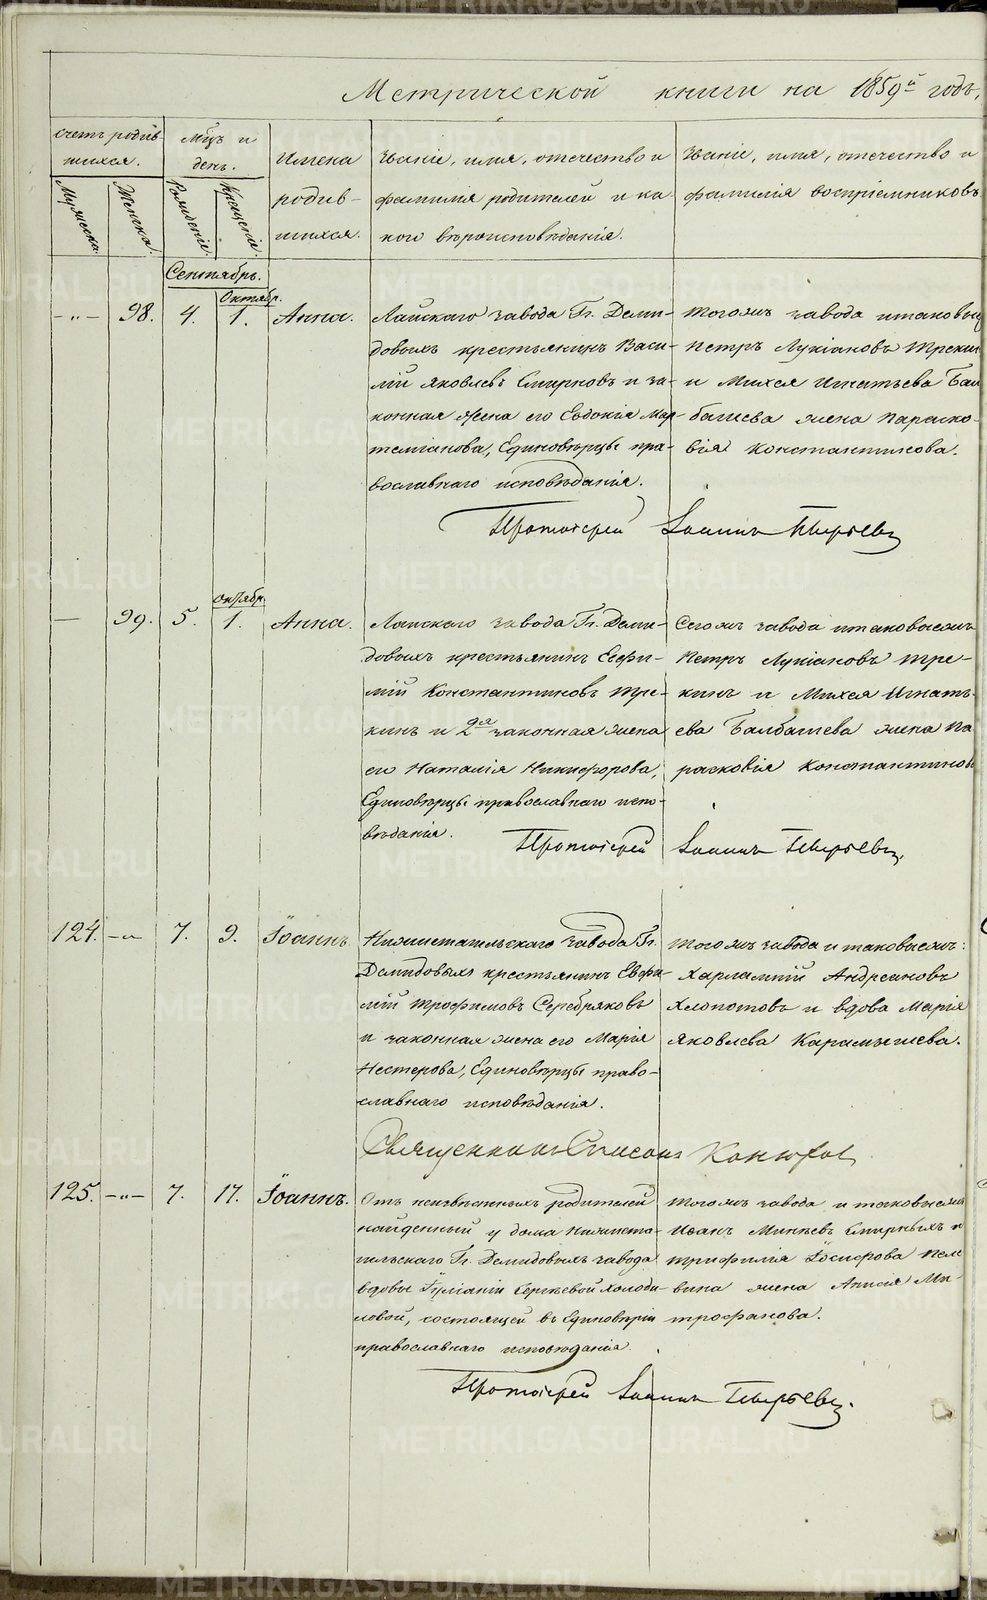 Метрической книги на 1859й годъ,
Счетъ родив-
шихся.
Мужеска.
Женска.
Мцъ и
день.
Рожденіе.
Крещеніе.
Имена
родив-
шихся.
Званіе, имя, отечество и
фамилія родителей и ка-
кого вѣроисповѣданія.
Званіе, имя, отечество и
фамилія воспріемниковъ
Сентябрь.
Октябр.
-"- 98. 4. 1. Анна.
Лайскаго завода Гг. Деми-
довыхъ крестьянинъ Васи-
лій Яковлевъ Смирновъ и за-
конная жена его Евдокія Мар-
темианова, Единовѣрцы пра-
вославнаго исповѣданія.
Тогожъ завода и таковые
Петръ Лукіановъ Трекин
и Михея Игнатьева Бал
башева жена Параско-
вія Константинова.
Протоіерей Іоаннъ Пырьевъ
Октябр.
— 99. 5. 1. Анна.
Лайскаго завода Гг. Деми-
довыхъ крестьянинъ Евфи-
мій Константиновъ Тре-
кинъ и 2я законная жена
его Наталія Никифорова,
Единовѣрцы православнаго испо-
вѣданія.
Сегожъ завода и таковыежъ
Петръ Лукіановъ Тре-
кинъ и Михея Игнать-
ева Балбашева жена Па
расковія Константинов
Протоіерей Іоаннъ Пырьевъ.
124. -"- 7. 9. Іоаннъ.
Нижнетагильскаго завода Гг.
Демидовыхъ крестьянинъ Евфи-
мій Трофимовъ Серебряковъ
и законная жена его Марія
Нестерова, Единовѣрцы право-
славнаго исповѣданія.
Тогожъ завода и таковыежъ:
Харлампій Андреяновъ
Хлопотовъ и вдова Марія
Яковлева Карамышева.
Священникъ Симеонъ Конюхов
125. -"- 7. 17. Іоаннъ.
Отъ неизвѣстныхъ родителей
найденный у дома Нижнета-
гильскаго Гг. Демидовыхъ завода
вдовы Іуліаніи Сергѣевой Холоди-
ловой, состоящей въ Единовѣріи
православнаго исповѣданія.
Тогожъ завода и таковыежъ
Иванъ Минѣевъ Смирныхъ и
Трифилія Іосифова Пеле
вина жена Анисія Ми-
трофанова.
Протоіерей Іоаннъ Пырьевъ.
METRIKI.GASO-URAL.RU